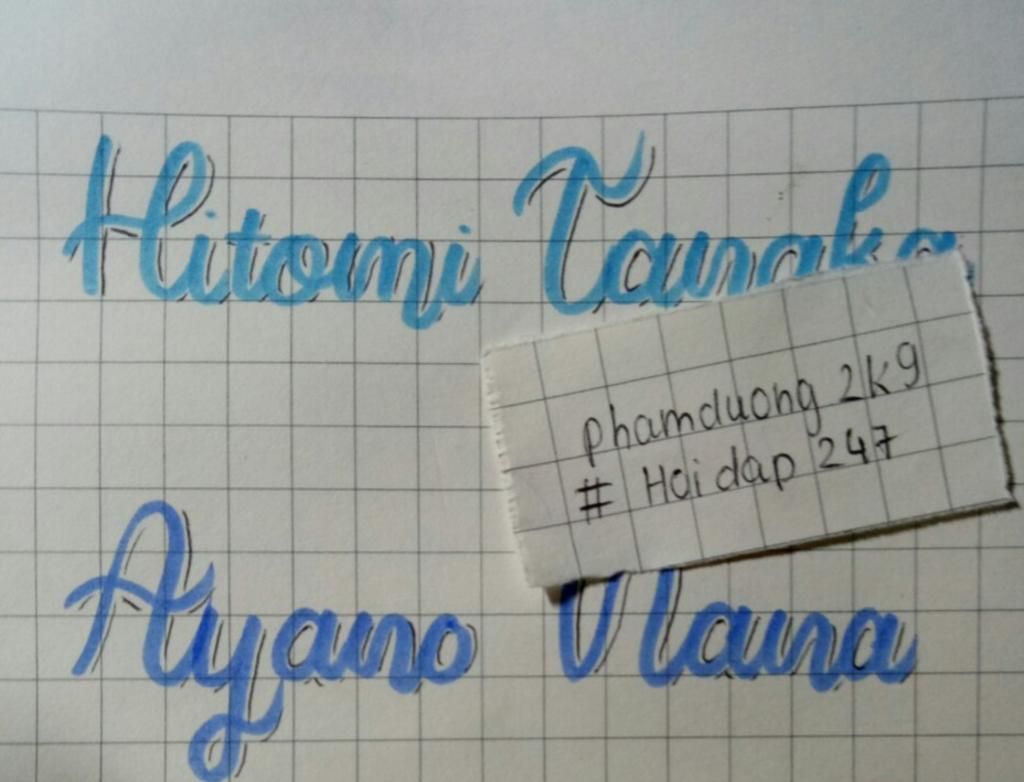 Hitomi Tanaka
phamduong 2k9
# Hoidap 247
Ayano Nana